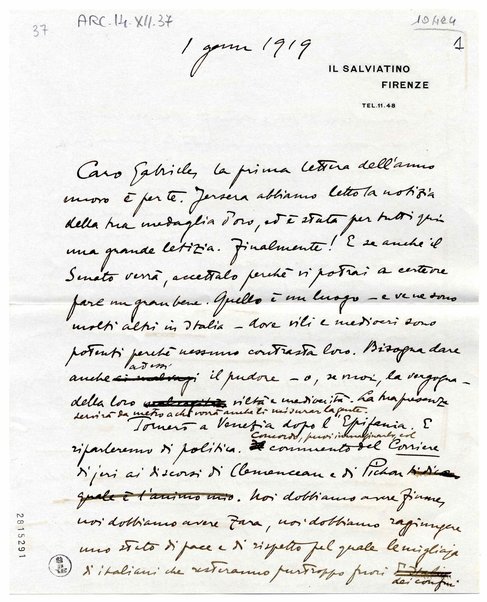 37
ARC. 14. XII. 37
19424
1
1 genn 1919
IL SALVIATINO
FIRENZE
TEL. 11.48
Caro Gabriele, la prima lettera dell'anno
nuovo è per te. Jersera abbiamo letto la notizia
della tua medaglia d'oro, ed è stata per tutti qui
una grande letizia. Finalmente! E se anche il
Senato verrà, accettalo perché vi potrai a certe ore
fare un gran bene. Quello è un luogo – e ve ne sono
molti altri in Italia – dove vili e mediocri sono
potenti perché nessuno contrasta loro. Bisogna dare
ad essi
anche ci malvagi il pudore – o, se vuoi, la vergogna –
della loro viltà e mediocrità. La tua presenza
servirà da metro a chi vorrà anche lì misurar la gente.
Tornerò a Venezia dopo l'Epifania. E
riparleremo di politica.
Concordo, puoi immaginarlo, col
commento del Corriere
di jeri ai discorsi di Clemenceau e di Pichon
quale è l'animo mio. Noi dobbiamo avere Fiume,
noi dobbiamo avere Zara, noi dobbiamo raggiungere
uno stato di pace e di rispetto pel quale le migliaja
di italiani che resteranno purtroppo fuori d'Italia
dei confini
2815291